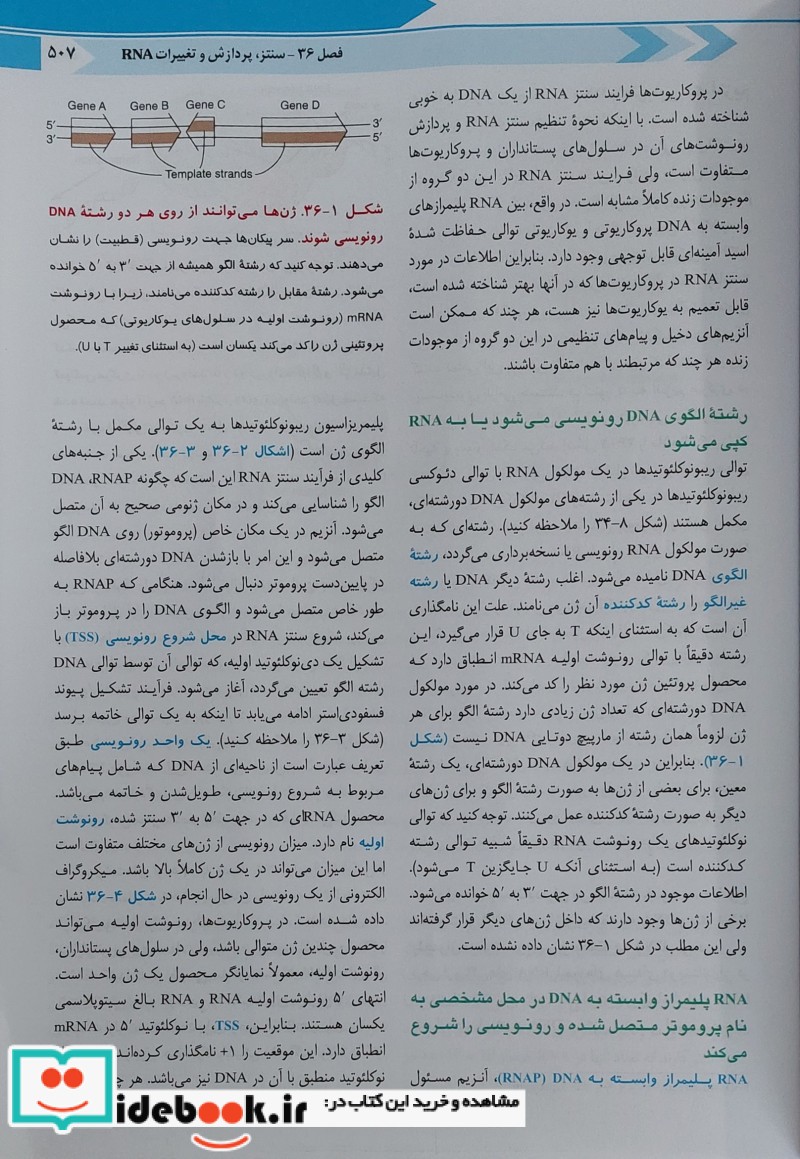 فصل ۳۶ – سنتز، پردازش و تغییرات RNA
۵۰۷
در پروکاریوت‌ها فرایند سنتز RNA از یک DNA به خوبی
شناخته شده است. با اینکه نحوهٔ تنظیم سنتز RNA و پردازش
رونوشت‌های آن در سلول‌های پستانداران و پروکاریوت‌ها
متفاوت است، ولی فرایند سنتز RNA در این دو گروه از
موجودات زنده کاملاً مشابه است. در واقع، بین RNA پلیمرازهای
وابسته به DNA پروکاریوتی و یوکاریوتی توالی حفاظت شدهٔ
اسید آمینه‌ای قابل توجهی وجود دارد. بنابراین اطلاعات در مورد
سنتز RNA در پروکاریوت‌ها که در آنها بهتر شناخته شده است،
قابل تعمیم به یوکاریوت‌ها نیز هست، هر چند که ممکن است
آنزیم‌های دخیل و پیام‌های تنظیمی در این دو گروه از موجودات
زنده هر چند که مرتبطند با هم متفاوت باشند.
رشتهٔ الگوی DNA رونویسی می‌شود یا به RNA
کپی می‌شود
توالی ریبونوکلئوتیدها در یک مولکول RNA با توالی دئوکسی
ریبونوکلئوتیدها در یکی از رشته‌های مولکول DNA دورشته‌ای،
مکمل هستند (شکل ۸–۳۴ را ملاحظه کنید). رشته‌ای که به
صورت مولکول RNA رونویسی یا نسخه‌برداری می‌گردد، رشتهٔ
الگوی DNA نامیده می‌شود. اغلب رشتهٔ دیگر DNA یا رشته
غیرالگو را رشتهٔ کدکننده آن ژن می‌نامند. علت این نامگذاری
آن است که به استثنای اینکه T به جای U قرار می‌گیرد، این
رشته دقیقاً با توالی رونوشت اولیه mRNA انطباق دارد که
محصول پروتئین ژن مورد نظر را کد می‌کند. در مورد مولکول
DNA دورشته‌ای که تعداد ژن زیادی دارد رشتهٔ الگو برای هر
ژن لزوماً همان رشته از مارپیچ دوتایی DNA نیست (شکل
۱–۳۶). بنابراین در یک مولکول DNA دورشته‌ای، یک رشتهٔ
معین، برای بعضی از ژن‌ها به صورت رشتهٔ الگو و برای ژن‌های
دیگر به صورت رشتهٔ کدکننده عمل می‌کنند. توجه کنید که توالی
نوکلئوتیدهای یک رونوشت RNA دقیقاً شبیه توالی رشته
کدکننده است (به استثنای آنکه U جایگزین T می‌شود).
اطلاعات موجود در رشتهٔ الگو در جهت ′۳ به ′۵ خوانده می‌شود.
برخی از ژن‌ها وجود دارند که داخل ژن‌های دیگر قرار گرفته‌اند
ولی این مطلب در شکل ۱–۳۶ نشان داده نشده است.
RNA پلیمراز وابسته به DNA در محل مشخصی به
نام پروموتر متصل شده و رونویسی را شروع
می‌کند
RNA پلیمراز وابسته به DNA (RNAP)، آنزیم مسئول
Gene A Gene B Gene C Gene D
5′ 3′
3′ 5′
Template strands
شکل ۱–۳۶. ژن‌ها می‌توانند از روی هر دو رشتهٔ DNA
رونویسی شوند. سر پیکان‌ها جهت رونویسی (قطبیت) را نشان
می‌دهند. توجه کنید که رشتهٔ الگو همیشه از جهت ′۳ به ′۵ خوانده
می‌شود. رشتهٔ مقابل را رشته کدکننده می‌نامند، زیرا با رونوشت
mRNA (رونوشت اولیه در سلول‌های یوکاریوتی) که محصول
پروتئینی ژن را کد می‌کند یکسان است (به استثنای تغییر T با U).
پلیمریزاسیون ریبونوکلئوتیدها به یک توالی مکمل با رشتهٔ
الگوی ژن است (اشکال ۲–۳۶ و ۳–۳۶). یکی از جنبه‌های
کلیدی از فرآیند سنتز RNA این است که چگونه RNAP، DNA
الگو را شناسایی می‌کند و در مکان ژنومی صحیح به آن متصل
می‌شود. آنزیم در یک مکان خاص (پروموتور) روی DNA الگو
متصل می‌شود و این امر با بازشدن DNA دورشته‌ای بلافاصله
در پایین‌دست پروموتر دنبال می‌شود. هنگامی که RNAP به
طور خاص متصل می‌شود و الگوی DNA را در پروموتر باز
می‌کند، شروع سنتز RNA در محل شروع رونویسی (TSS) با
تشکیل یک دی‌نوکلئوتید اولیه، که توالی آن توسط توالی DNA
رشته الگو تعیین می‌گردد، آغاز می‌شود. فرآیند تشکیل پیوند
فسفودی‌استر ادامه می‌یابد تا اینکه به یک توالی خاتمه برسد
(شکل ۳–۳۶ را ملاحظه کنید). یک واحد رونویسی طبق
تعریف عبارت است از ناحیه‌ای از DNA که شامل پیام‌های
مربوط به شروع رونویسی، طویل‌شدن و خاتمه می‌باشد.
محصول RNAای که در جهت ′۵ به ′۳ سنتز شده، رونوشت
اولیه نام دارد. میزان رونویسی از ژن‌های مختلف متفاوت است
اما این میزان می‌تواند در یک ژن کاملاً بالا باشد. میکروگراف
الکترونی از یک رونویسی در حال انجام، در شکل ۴–۳۶ نشان
داده شده است. در پروکاریوت‌ها، رونوشت اولیه می‌تواند
محصول چندین ژن متوالی باشد، ولی در سلول‌های پستانداران،
رونوشت اولیه، معمولاً نمایانگر محصول یک ژن واحد است.
انتهای ′۵ رونوشت اولیه RNA و RNA بالغ سیتوپلاسمی
یکسان هستند. بنابراین، TSS، با نوکلئوتید ′۵ در mRNA
انطباق دارد. این موقعیت را ۱+ نامگذاری کرده‌اند
نوکلئوتید منطبق با آن در DNA نیز می‌باشد. هر
مشاهده و خرید این کتاب در:
idebook.ir